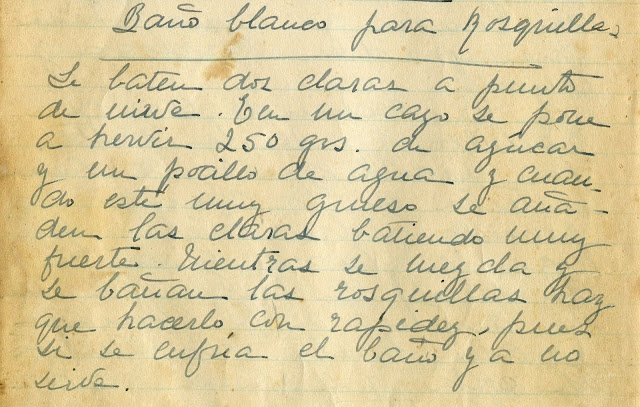 Baño blanco para Rosquillas
Se baten dos claras a punto
de nieve. En un cazo se pone
a hervir 250 grs. de azúcar
y un pocillo de agua y cuan-
do esté muy grueso se aña-
den las claras batiendo muy
fuerte. Mientras se mezcla y
se bañan las rosquillas hay
que hacerlo con rapidez, pues
si se enfria el baño ya no
sirve.